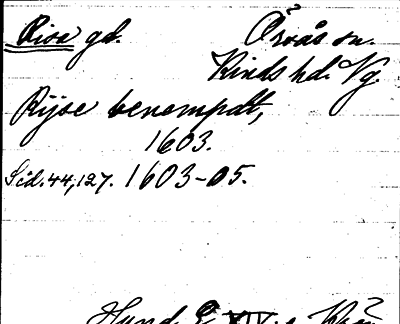 Risa gd. Örsås sn.
Kinds hd. Vg.
Rijse benempdt,
1603.
Sid. 44, 127. 1603-05.
Hund. E XIV: